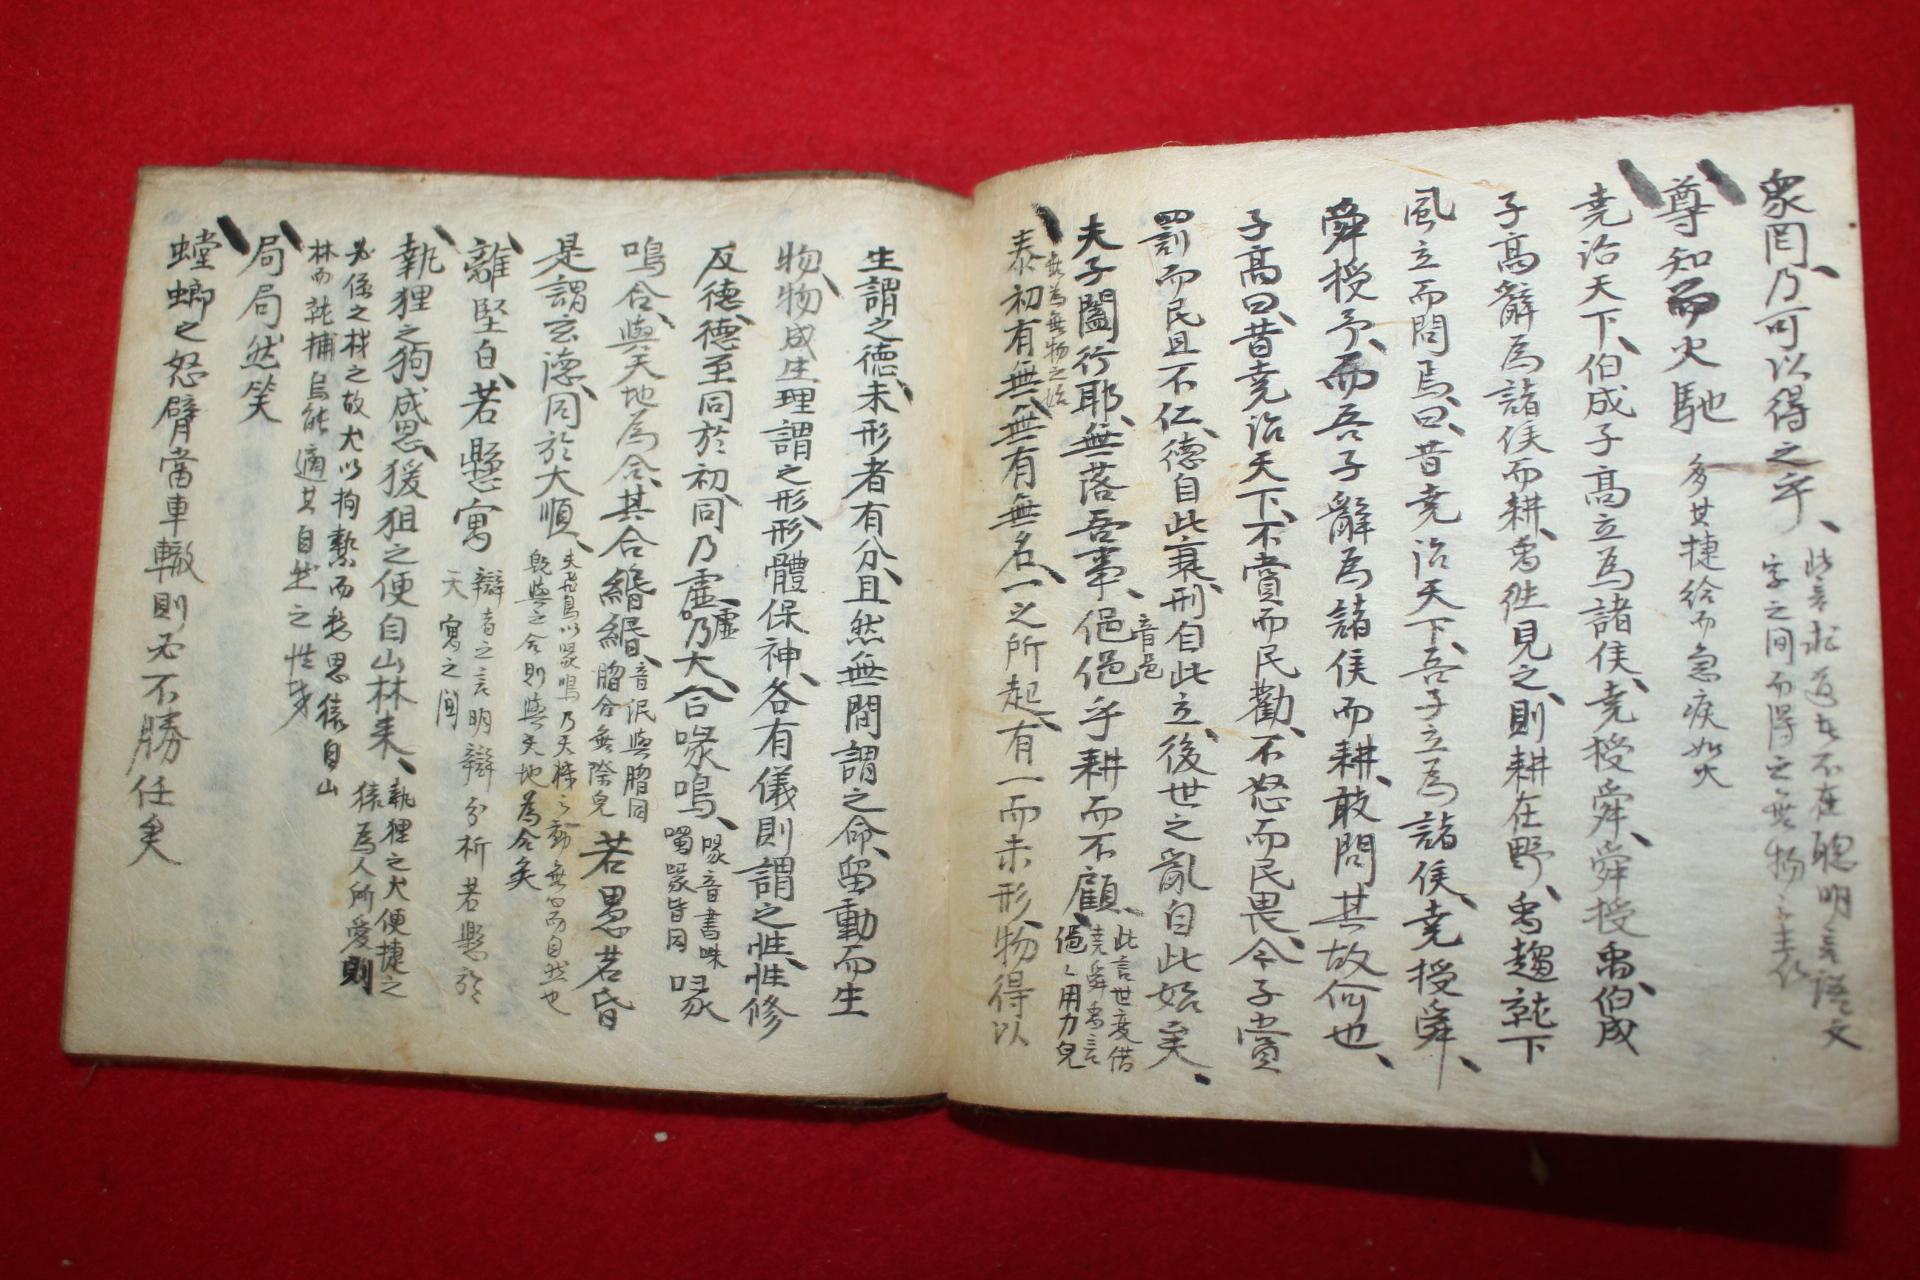 象罔乃可以得之乎 此言求道者不在聰明言語文
字之間而得之無物
尊知而火馳 多其捷給而急疾如火
堯治天下伯成子高立為諸侯堯授舜舜授禹伯成
子高辭為諸侯而耕禹徃見之則耕在野禹趨就下
風立而問焉曰昔堯治天下吾子立為諸侯堯授舜
舜授予而吾子辭為諸侯而耕敢問其故何也
子高曰昔堯治天下不賞而民勸不怒而民畏今子賞
罰而民且不仁德自此衰刑自此立後世之亂自此始矣
音邑
夫子闔行耶無落吾事俋俋乎耕而不顧 此言世変借
堯舜禹言
俋〻用力皃
無為無物之始
泰初有無無有無名一之所起有一而未形物得以
生謂之德未形者有分且然無間謂之命留動而生
物物成生理謂之形形體保神各有儀則謂之性性修
反德德至同於初同乃虛虛乃大合喙鳴 喙音書咮
噣喙皆同 喙
鳴合與天地為合其合緡緡 音泯與脗同
脗合無際皃 若愚若昏
是謂玄德同於大順 夫飛鳥以喙鳴乃天機之動無心而自然也
既與之合則與天地為合矣
離堅白若懸寓 辯者之言明辯分析若懸於
天寓之間
執狸之狗成思猨狙之便自山林來 執狸之犬便捷之
猿為人所愛則
必係之材之故犬以拘繫而愁思猿自山
林而就捕烏能適其自然之性哉
局局然笑
螳螂之怒臂當車轍則必不勝任矣